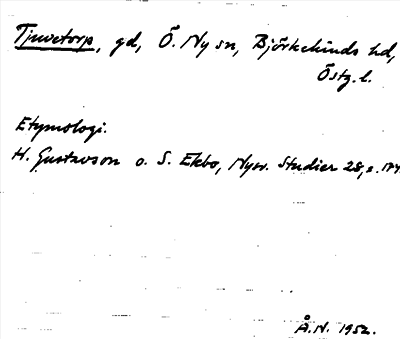 Tjuvetorp, gd, Ö. Ny sn, Björkekinds hd,
Östg. l.
Etymologi.
H. Gustavson o. S. Ekbo, Nysv. Studier 28, s.
Å.N. 1952.